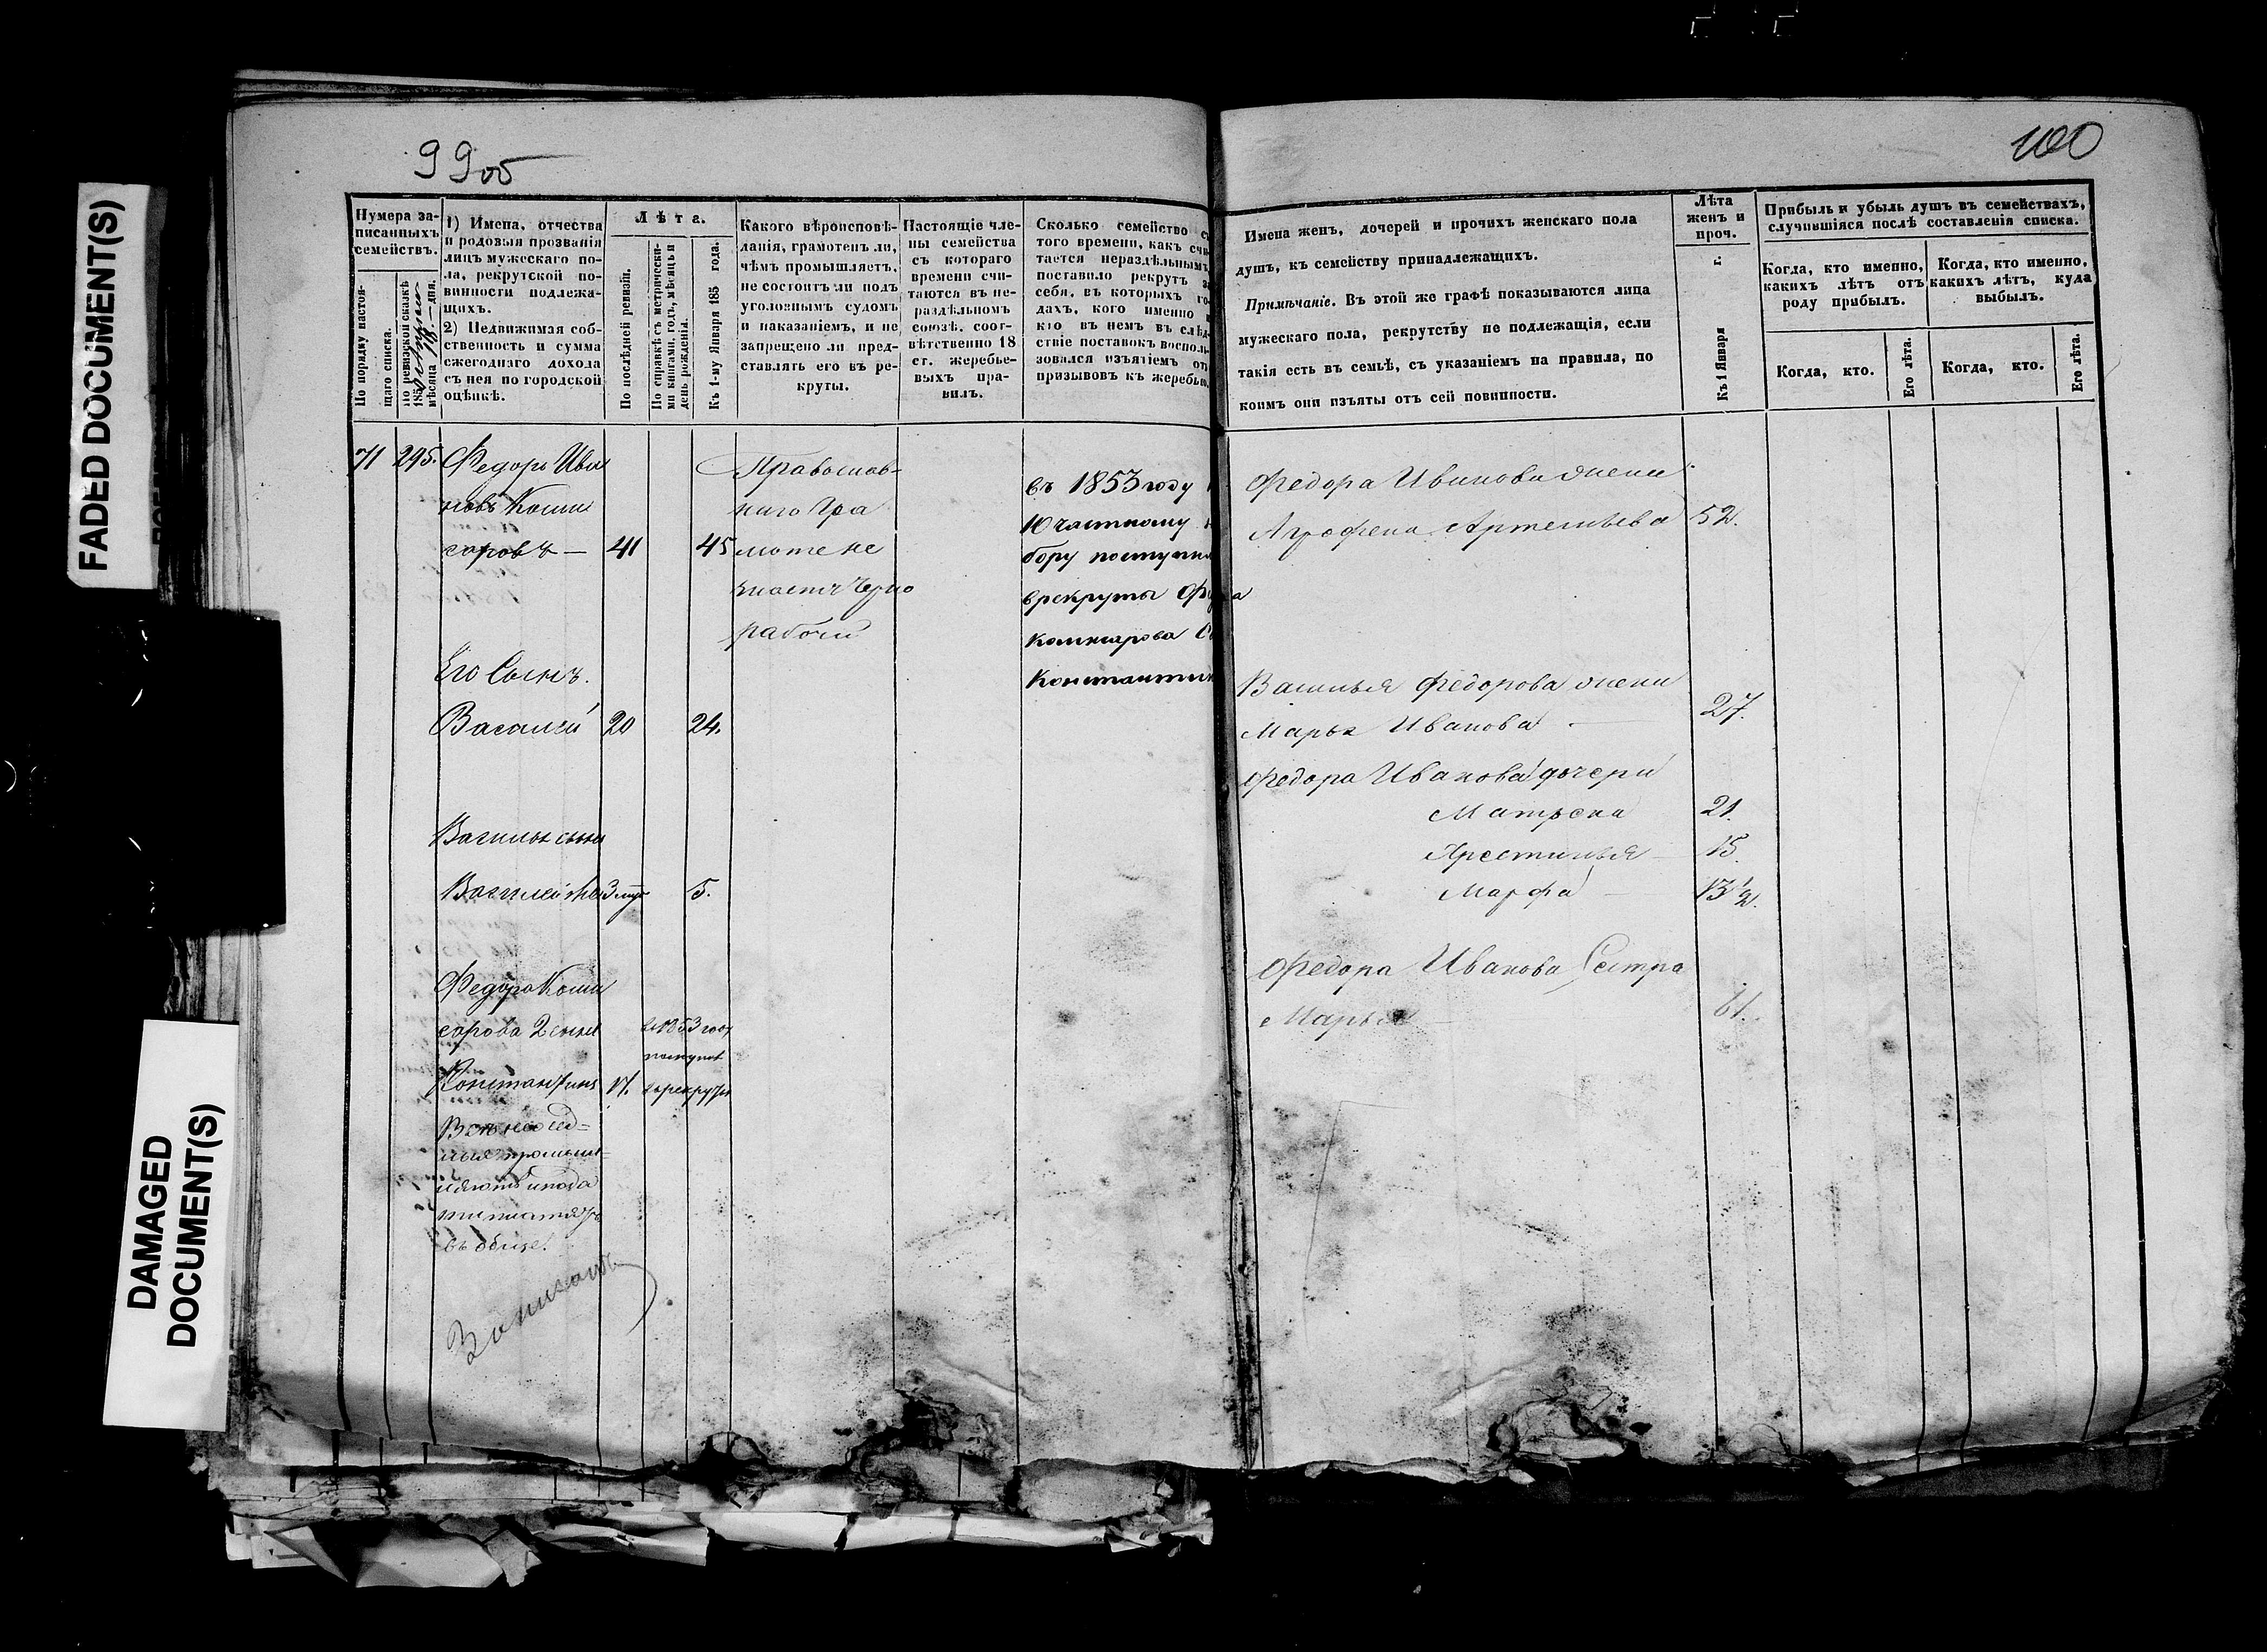 FADED DOCUMENT(S)
DAMAGED
DOCUMENT(S)
99об
Нумера за-
писанныхъ
семействъ.
По порядку настоя-
щаго списка.
По ревизской сказкѣ
мѣсяца дня.
1) Имена, отчества
и родовыя прозванія
лицъ мужескаго по-
ла, рекрутской по-
винности подлежа-
щихъ.
2) Недвижимая соб-
ственность и сумма
ежегоднаго дохода
съ нея по городской
оцѣнкѣ.
Лѣта.
По послѣдней ревизіи.
По справкѣ съ метрически-
ми книгами, годъ, мѣсяцъ и
день рожденія.
Къ 1-му Января 185 года.
Какого вѣроисповѣ-
данія, грамотенъ ли,
чѣмъ промышляетъ,
не состоитъ ли подъ
уголовнымъ судомъ
и наказаніемъ, и не
запрещено ли пред-
ставлять его въ ре-
круты.
Настоящіе чле-
ны семейства
съ котораго
времени счи-
таются въ не-
раздѣльномъ
союзѣ, соот-
вѣтственно 18
ст. жеребье-
выхъ пра-
вилъ.
Сколько семейство с
того времени, какъ счи
тается нераздѣльнымъ
поставило рекрутъ за
себя, въ которыхъ го
дахъ, кого именно и
кто въ немъ въ слѣд
ствіе поставокъ восполь
зовался изъятіемъ отъ
призывовъ къ жеребью.
71 295. Федоръ Ива
новъ Коми
саровъ — 41 45
Православ-
наго Гра
моте не
знаетъ Черно
рабочій
въ 1853 году
10 частному н
бору поступил
врекруты Ф
комисарова С
Константин
Его Сынъ.
Василій 20 24.
Василья сынъ
Василей 5.
Федора Коми
сарова 2 сынъ
Константинъ 17.
в 1853 году
поступ
в рекруты
въ обще.
100
Имена женъ, дочерей и прочихъ женскаго пола
душъ, къ семейству принадлежащихъ.
Примѣчаніе. Въ этой же графѣ показываются лица
мужескаго пола, рекрутству не подлежащія, если
такія есть въ семьѣ, съ указаніемъ на правила, по
коимъ они изъяты отъ сей повинности.
Лѣта
женъ и
проч.
Къ 1 Января г.
Прибыль и убыль душъ въ семействахъ,
случившіяся послѣ составленія списка.
Когда, кто именно,
какихъ лѣтъ отъ
роду прибылъ.
Когда, кто именно,
какихъ лѣтъ, куда
выбылъ.
Когда, кто.
Его лѣта.
Когда, кто.
Его лѣта.
Федора Иванова жена
Агрофена Артемьева 52.
Василья Федорова жена
Марья Иванова — 27.
Федора Иванова дочери
Матрена 21.
15.
Марфа — 13 1/2.
Федора Иванова Сестра
Марья — 61.